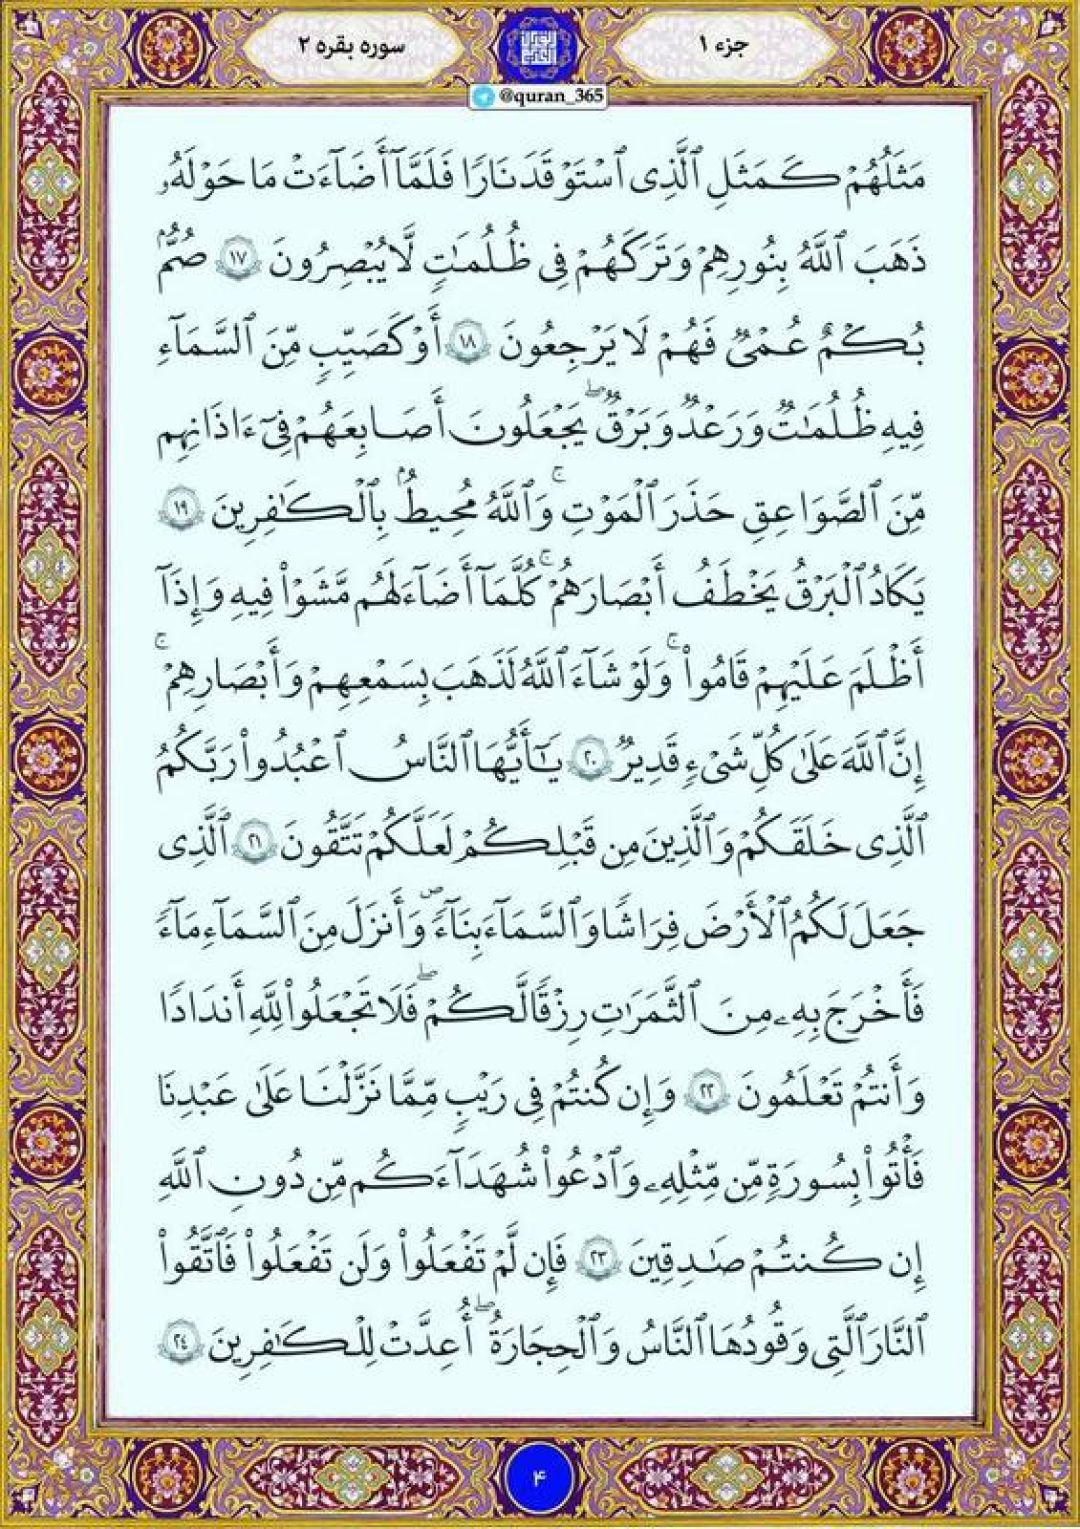 جزء ۱
سوره بقره ۲
@quran_365
مَثَلُهُمْ كَمَثَلِ ٱلَّذِى ٱسْتَوْقَدَ نَارًا فَلَمَّآ أَضَآءَتْ مَا حَوْلَهُۥ
ذَهَبَ ٱللَّهُ بِنُورِهِمْ وَتَرَكَهُمْ فِى ظُلُمَـٰتٍ لَّا يُبْصِرُونَ ١٧ صُمُّۢ
بُكْمٌ عُمْىٌ فَهُمْ لَا يَرْجِعُونَ ١٨ أَوْ كَصَيِّبٍ مِّنَ ٱلسَّمَآءِ
فِيهِ ظُلُمَـٰتٌ وَرَعْدٌ وَبَرْقٌ ۖ يَجْعَلُونَ أَصَـٰبِعَهُمْ فِىٓ ءَاذَانِهِم
مِّنَ ٱلصَّوَٰعِقِ حَذَرَ ٱلْمَوْتِ ۚ وَٱللَّهُ مُحِيطٌۢ بِٱلْكَـٰفِرِينَ ١٩
يَكَادُ ٱلْبَرْقُ يَخْطَفُ أَبْصَـٰرَهُمْ ۚ كُلَّمَآ أَضَآءَ لَهُم مَّشَوْا۟ فِيهِ وَإِذَآ
أَظْلَمَ عَلَيْهِمْ قَامُوا۟ ۚ وَلَوْ شَآءَ ٱللَّهُ لَذَهَبَ بِسَمْعِهِمْ وَأَبْصَـٰرِهِمْ ۚ
إِنَّ ٱللَّهَ عَلَىٰ كُلِّ شَىْءٍ قَدِيرٌ ٢٠ يَـٰٓأَيُّهَا ٱلنَّاسُ ٱعْبُدُوا۟ رَبَّكُمُ
ٱلَّذِى خَلَقَكُمْ وَٱلَّذِينَ مِن قَبْلِكُمْ لَعَلَّكُمْ تَتَّقُونَ ٢١ ٱلَّذِى
جَعَلَ لَكُمُ ٱلْأَرْضَ فِرَٰشًا وَٱلسَّمَآءَ بِنَآءً وَأَنزَلَ مِنَ ٱلسَّمَآءِ مَآءً
فَأَخْرَجَ بِهِۦ مِنَ ٱلثَّمَرَٰتِ رِزْقًا لَّكُمْ ۖ فَلَا تَجْعَلُوا۟ لِلَّهِ أَندَادًا
وَأَنتُمْ تَعْلَمُونَ ٢٢ وَإِن كُنتُمْ فِى رَيْبٍ مِّمَّا نَزَّلْنَا عَلَىٰ عَبْدِنَا
فَأْتُوا۟ بِسُورَةٍ مِّن مِّثْلِهِۦ وَٱدْعُوا۟ شُهَدَآءَكُم مِّن دُونِ ٱللَّهِ
إِن كُنتُمْ صَـٰدِقِينَ ٢٣ فَإِن لَّمْ تَفْعَلُوا۟ وَلَن تَفْعَلُوا۟ فَٱتَّقُوا۟
ٱلنَّارَ ٱلَّتِى وَقُودُهَا ٱلنَّاسُ وَٱلْحِجَارَةُ ۖ أُعِدَّتْ لِلْكَـٰفِرِينَ ٢٤
۴